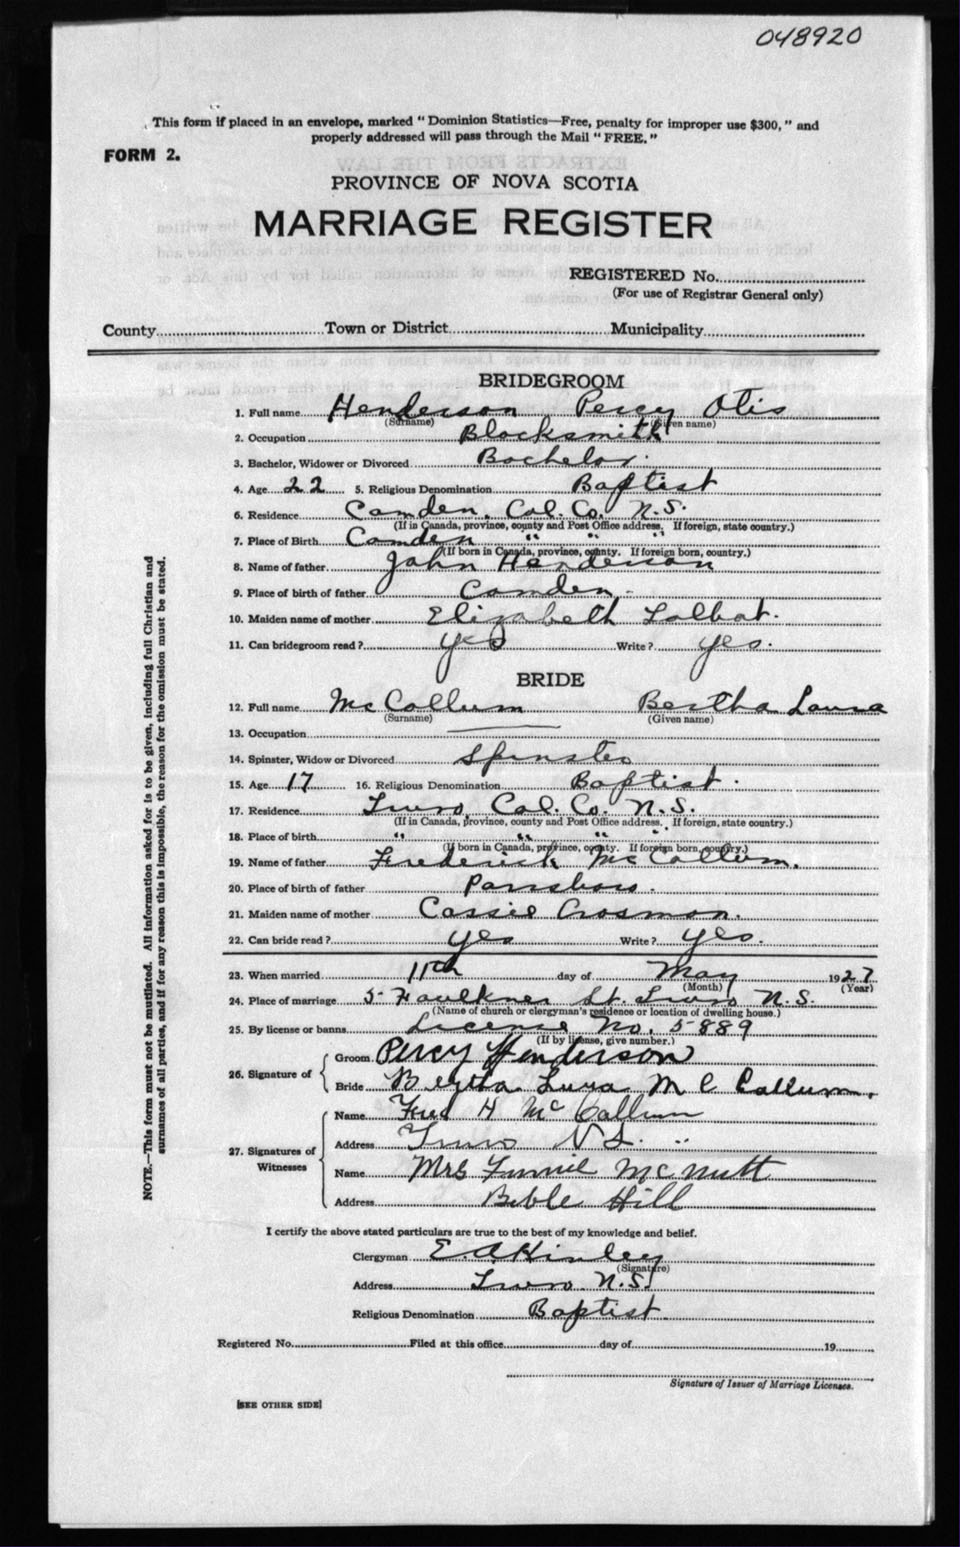 048920
This form if placed in an envelope, marked "Dominion Statistics—Free, penalty for improper use $300," and
properly addressed will pass through the Mail "FREE."
FORM 2.
PROVINCE OF NOVA SCOTIA
MARRIAGE REGISTER
REGISTERED No.
(For use of Registrar General only)
County Town or District Municipality
BRIDEGROOM
1. Full name Henderson Percy Otis
(Surname) (Given name)
2. Occupation Blacksmith
3. Bachelor, Widower or Divorced Bachelor.
4. Age 22 5. Religious Denomination Baptist
6. Residence Camden, Col. Co. N.S.
(If in Canada, province, county and Post Office address. If foreign, state country.)
7. Place of Birth Camden " " "
(If born in Canada, province, county. If foreign born, country.)
8. Name of father John Henderson
9. Place of birth of father Camden.
10. Maiden name of mother Elizabeth Talbot.
11. Can bridegroom read? yes Write? yes.
BRIDE
12. Full name McCallum Bertha Laura
(Surname) (Given name)
13. Occupation
14. Spinster, Widow or Divorced Spinster
15. Age 17 16. Religious Denomination Baptist.
17. Residence Truro, Col. Co. N.S.
(If in Canada, province, county and Post Office address. If foreign, state country.)
18. Place of birth " " " "
(If born in Canada, province, county. If foreign born, country.)
19. Name of father Frederick McCallum.
20. Place of birth of father Parrsboro.
21. Maiden name of mother Cassie Crosman.
22. Can bride read? yes Write? yes.
23. When married 11th day of May 1927
(Month) (Year)
24. Place of marriage 5 Faulkner St. Truro N.S.
(Name of church or clergyman's residence or location of dwelling house.)
25. By license or banns License No. 5889
(If by license, give number.)
26. Signature of Groom Percy Henderson
Bride Bertha Lura McCallum.
27. Signatures of Witnesses Name Fred H McCallum
Address Truro N.S.
Name Mrs McNutt
Address Bible Hill
I certify the above stated particulars are true to the best of my knowledge and belief.
Clergyman E. A. Kinley
(Signature)
Address Truro N.S.
Religious Denomination Baptist
Registered No. Filed at this office day of 19
Signature of Issuer of Marriage Licenses.
[SEE OTHER SIDE]
NOTE.—This form must not be mutilated. All information asked for is to be given, including full Christian and
surnames of all parties, and if for any reason this is impossible, the reason for the omission must be stated.